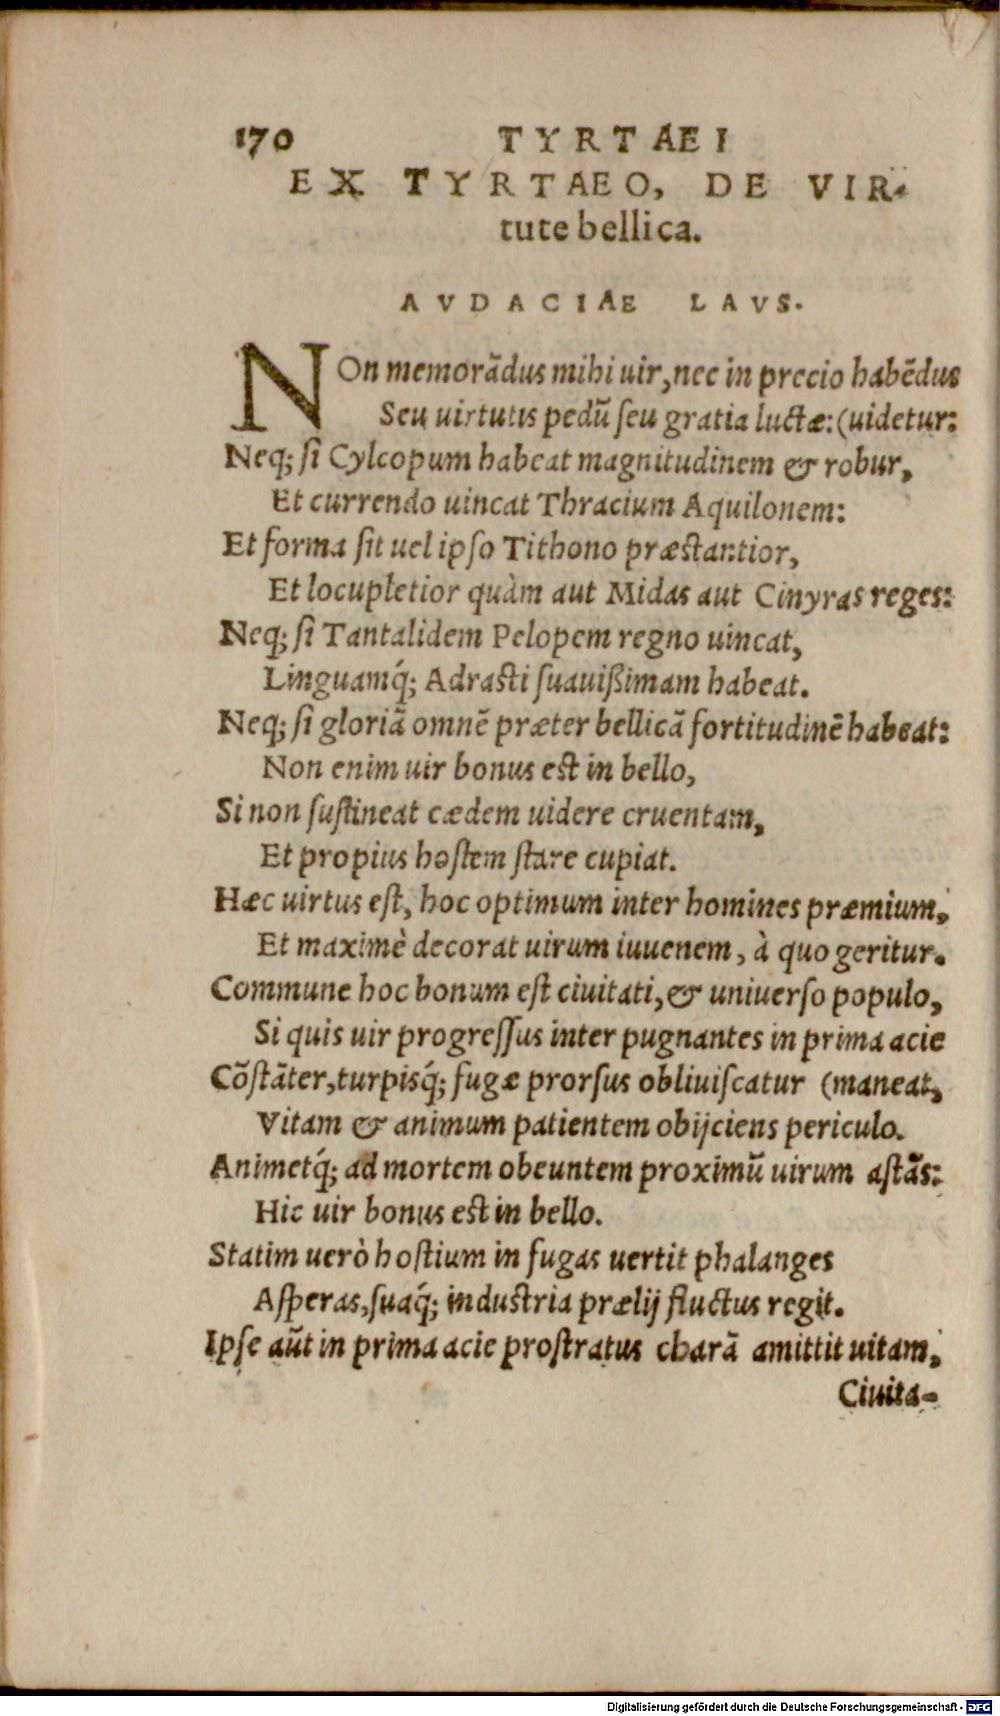 170 TYRTAEI
EX TYRTAEO, DE VIR-
tute bellica.
AVDACIAE LAVS.
NOn memorãdus mihi uir, nec in precio habẽdus
Seu uirtutis pedũ ſeu gratia luctæ: (uidetur:
Neq; ſi Cylcopum habeat magnitudinem & robur,
Et currendo uincat Thracium Aquilonem:
Et forma ſit uel ipſo Tithono præſtantior,
Et locupletior quàm aut Midas aut Cinyras reges:
Neq; ſi Tantalidem Pelopem regno uincat,
Linguamq́; Adraſti ſuauißimam habeat.
Neq; ſi gloriã omnẽ præter bellicã fortitudinẽ habeat:
Non enim uir bonus eſt in bello,
Si non ſuſtineat cædem uidere cruentam,
Et propius hoſtem ſtare cupiat.
Hæc uirtus eſt, hoc optimum inter homines præmium,
Et maximè decorat uirum iuuenem, à quo geritur.
Commune hoc bonum eſt ciuitati, & uniuerſo populo,
Si quis uir progreſſus inter pugnantes in prima acie
Cõſtãter, turpisq́; fugæ prorſus obliuiſcatur (maneat,
Vitam & animum patientem obijciens periculo.
Animetq́; ad mortem obeuntem proximũ uirum aſtãs:
Hic uir bonus eſt in bello.
Statim uerò hoſtium in fugas uertit phalanges
Aſperas, ſuaq́; induſtria prælij fluctus regit.
Ipſe aũt in prima acie proſtratus charã amittit uitam,
Ciuita-
Digitalisierung gefördert durch die Deutsche Forschungsgemeinschaft - DFG